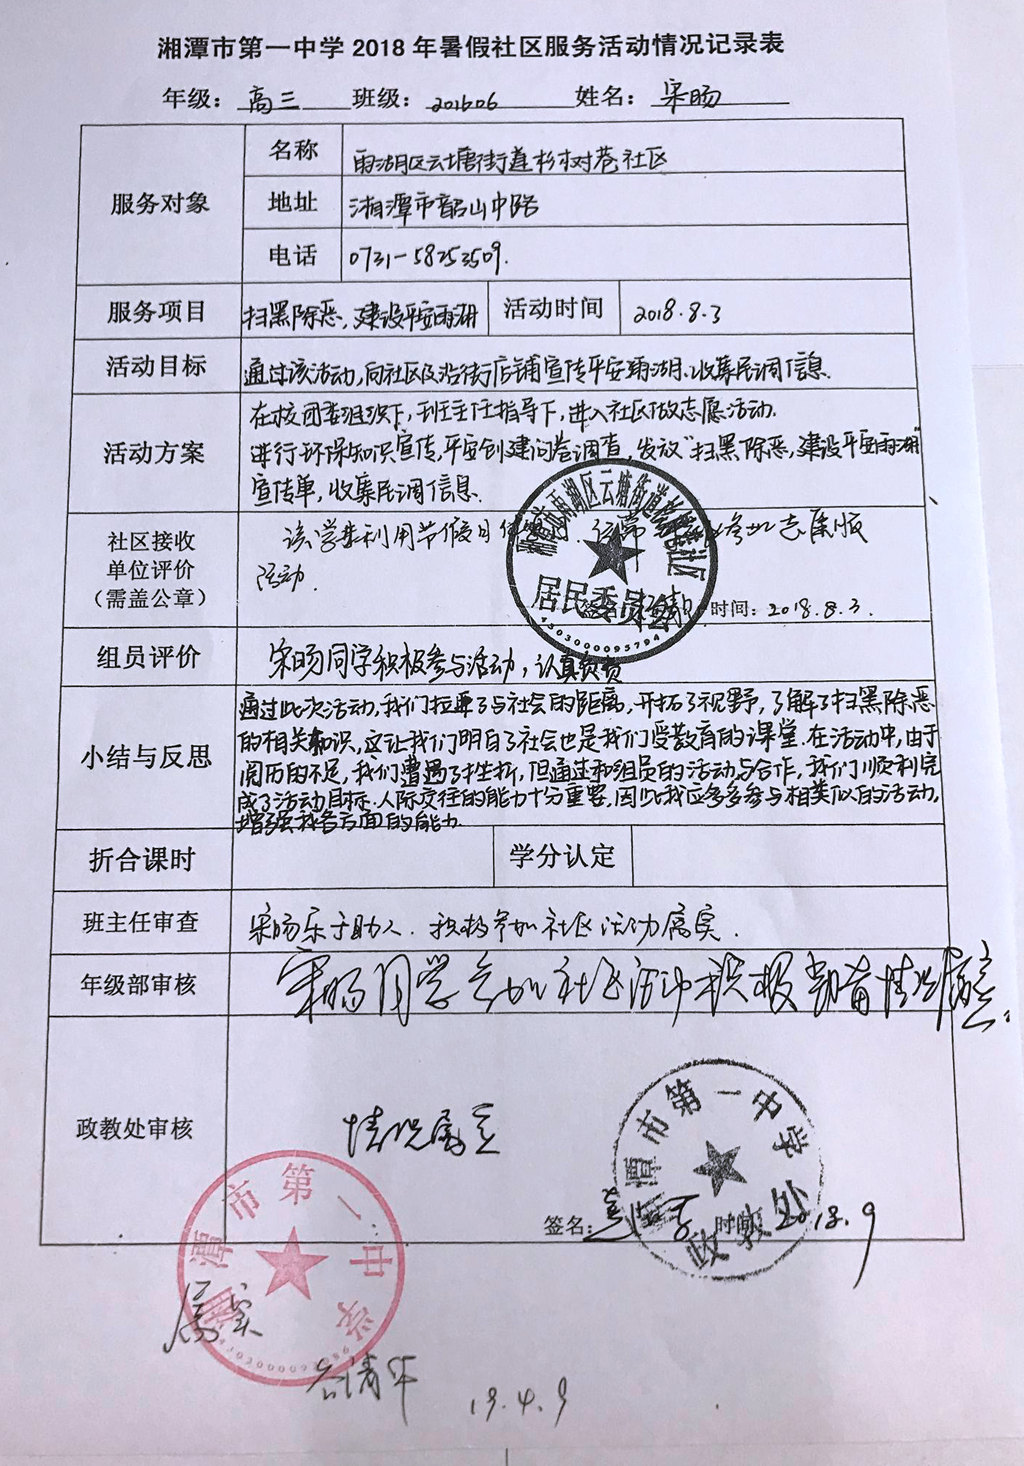 湘潭市第一中学 2018 年暑假社区服务活动情况记录表
年级：高三 班级：201606 姓名：宋旸
服务对象
名称 雨湖区云塘街道杉树巷社区
地址 湘潭市韶山中路
电话 0731-58253509.
服务项目 扫黑除恶，建设平安雨湖 活动时间 2018.8.3
活动目标 通过该活动，向社区及沿街店铺宣传平安雨湖、收集民调信息.
活动方案
在校团委组织下，班主任指导下，进入社区做志愿活动.
进行环保知识宣传，平安创建问卷调查，发放“扫黑除恶，建设平安雨湖”
宣传单，收集民调信息.
社区接收
单位评价
（需盖公章）
该学生利用节假日
活动.
时间：2018.8.3.
雨湖区云塘街道杉树巷社区
居民委员会
4303000095794
组员评价 宋旸同学积极参与活动，认真负责
小结与反思
通过此次活动，我们拉近了与社会的距离，开拓了视野，了解了扫黑除恶
的相关知识，这让我们明白了社会也是我们受教育的课堂.在活动中，由于
阅历的不足，我们遭遇了挫折，但通过和组员的活动与合作，我们顺利完
成了活动目标.人际交往的能力十分重要，因此我应多多参与相类似的活动，
增强我各方面的能力.
折合课时 学分认定
班主任审查 宋旸乐于助人.积极参加社区活动属实.
年级部审核 宋旸同学参加社区活动积极 情况属实.
政教处审核
情况属实
湘潭市第一中学
政教处
签名： 时间：2018.9
湘潭市第一中学
属实
19.4.9